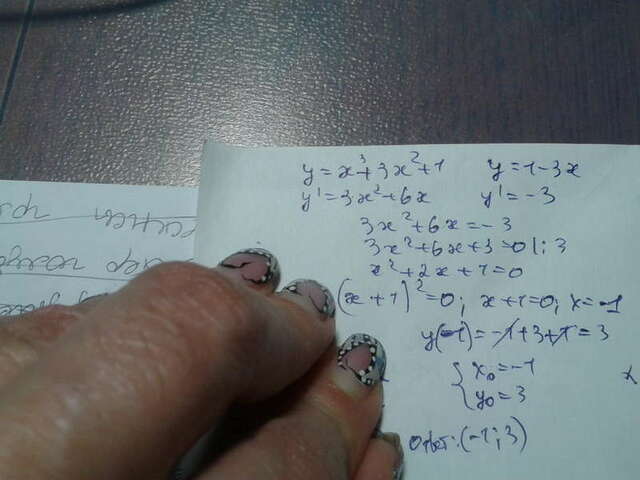 y = x³+3x²+1 y = 1-3x
y' = 3x²+6x y' = -3
3x²+6x = -3
3x²+6x+3 = 0 |:3
x²+2x+1 = 0
(x+1)² = 0; x+1=0; x = -1
y(-1) = -1+3+1 = 3
{ x₀ = -1
y₀ = 3
Ответ: (-1; 3)